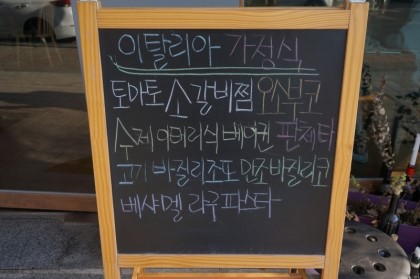 이탈리아 가정식
토마토 소갈비찜 오소부코
수제 이태리식 베이컨 판체타
고기 바질리조또 만조 바질리코
베샤멜 라구 파스타